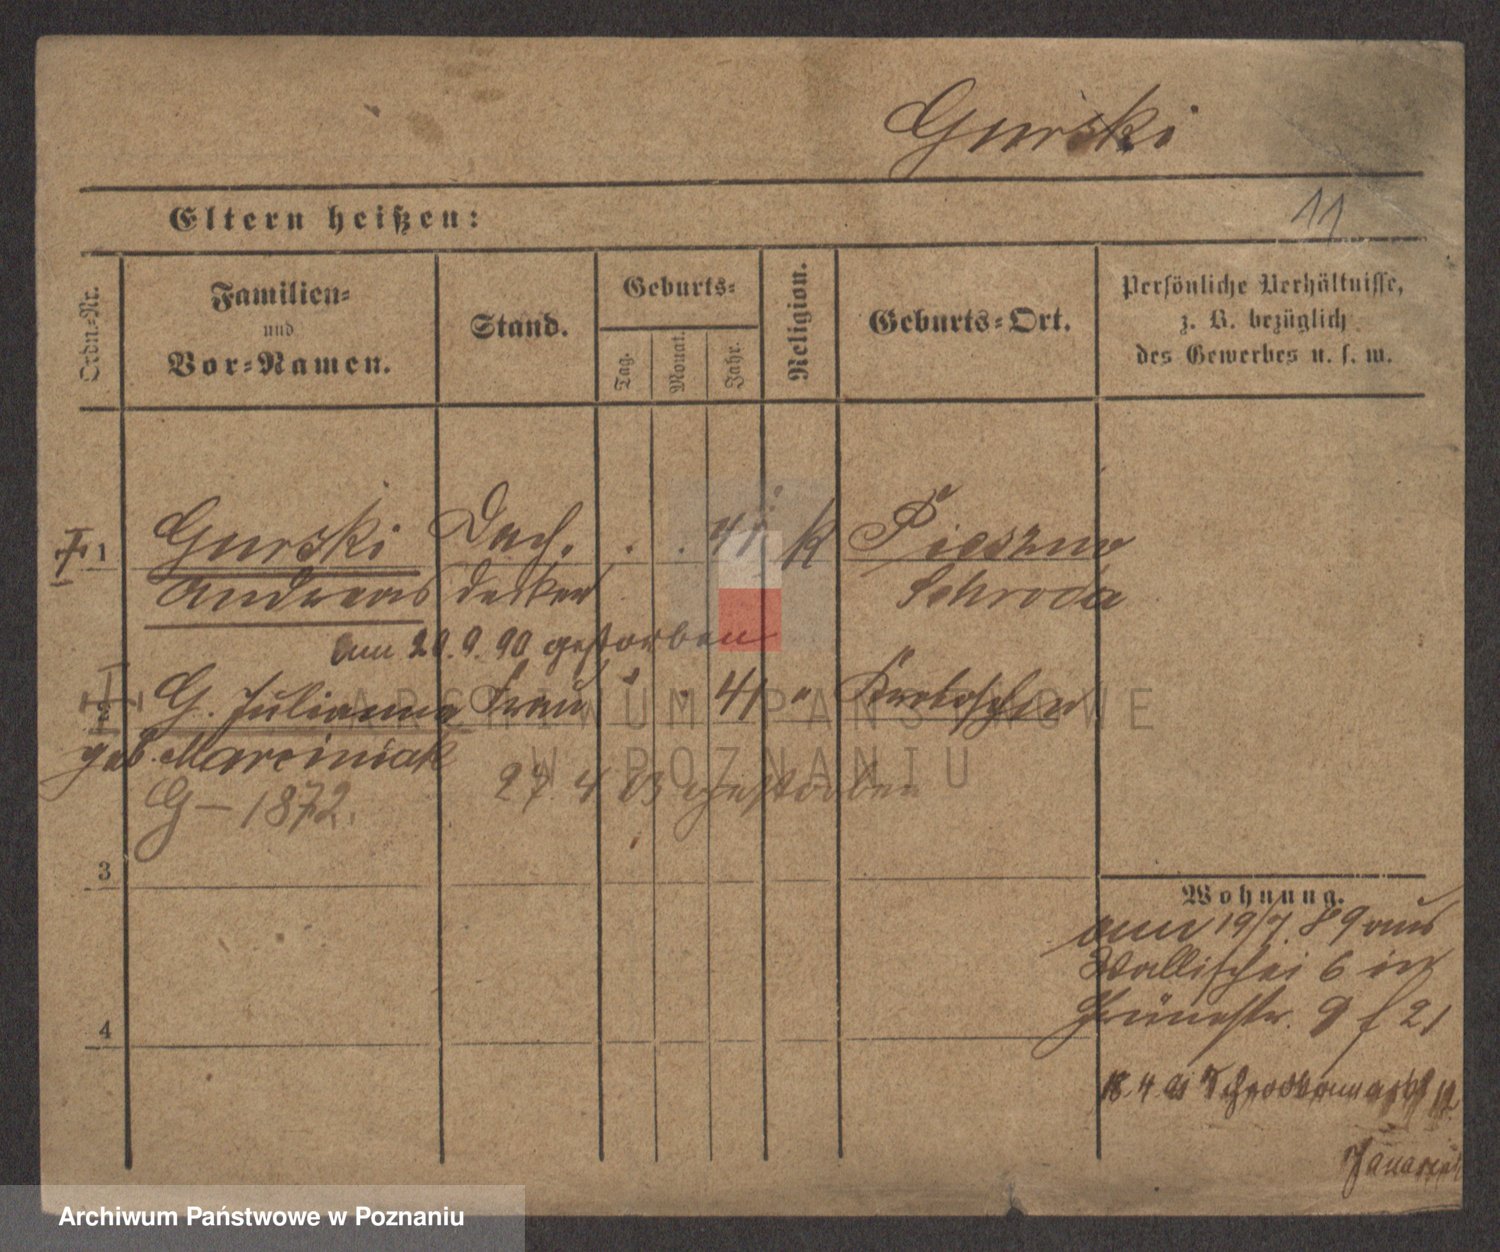 Gurski
11
Eltern heißen:
Ordn.-Nr.
Familien-
und
Vor-Namen.
Stand.
Geburts-
Tag.
Monat.
Jahr.
Religion.
Geburts-Ort.
Persönliche Verhältnisse,
z. B. bezüglich
des Gewerbes u. s. w.
1 Gurski Dach. . . 41 K
Andreas decker Schroda
am 20.9.90 gestorben
G. Julianna Frau 41 " Krotoschin
geb. Marciniak
G - 1872. 27. 4 03 gestorben
3
4
Wohnung.
am 19/7. 89 aus
Wallischei 6 in
Grünestr. 9
18. 4. 91
ARCHIWUM PAŃSTWOWE
W POZNANIU
Archiwum Państwowe w Poznaniu